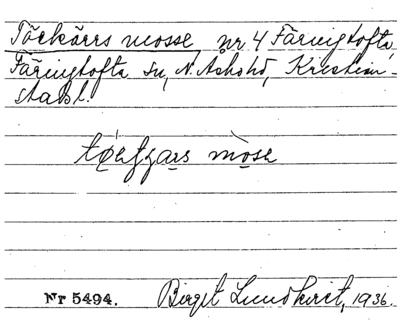 Törkärrs mosse nr 4 Färingtofta,
Färingtofta sn, N. Åsbo hd, Kristian-
stads l.
mòse
Nr 5494. Birgit Lundkvist, 1936.